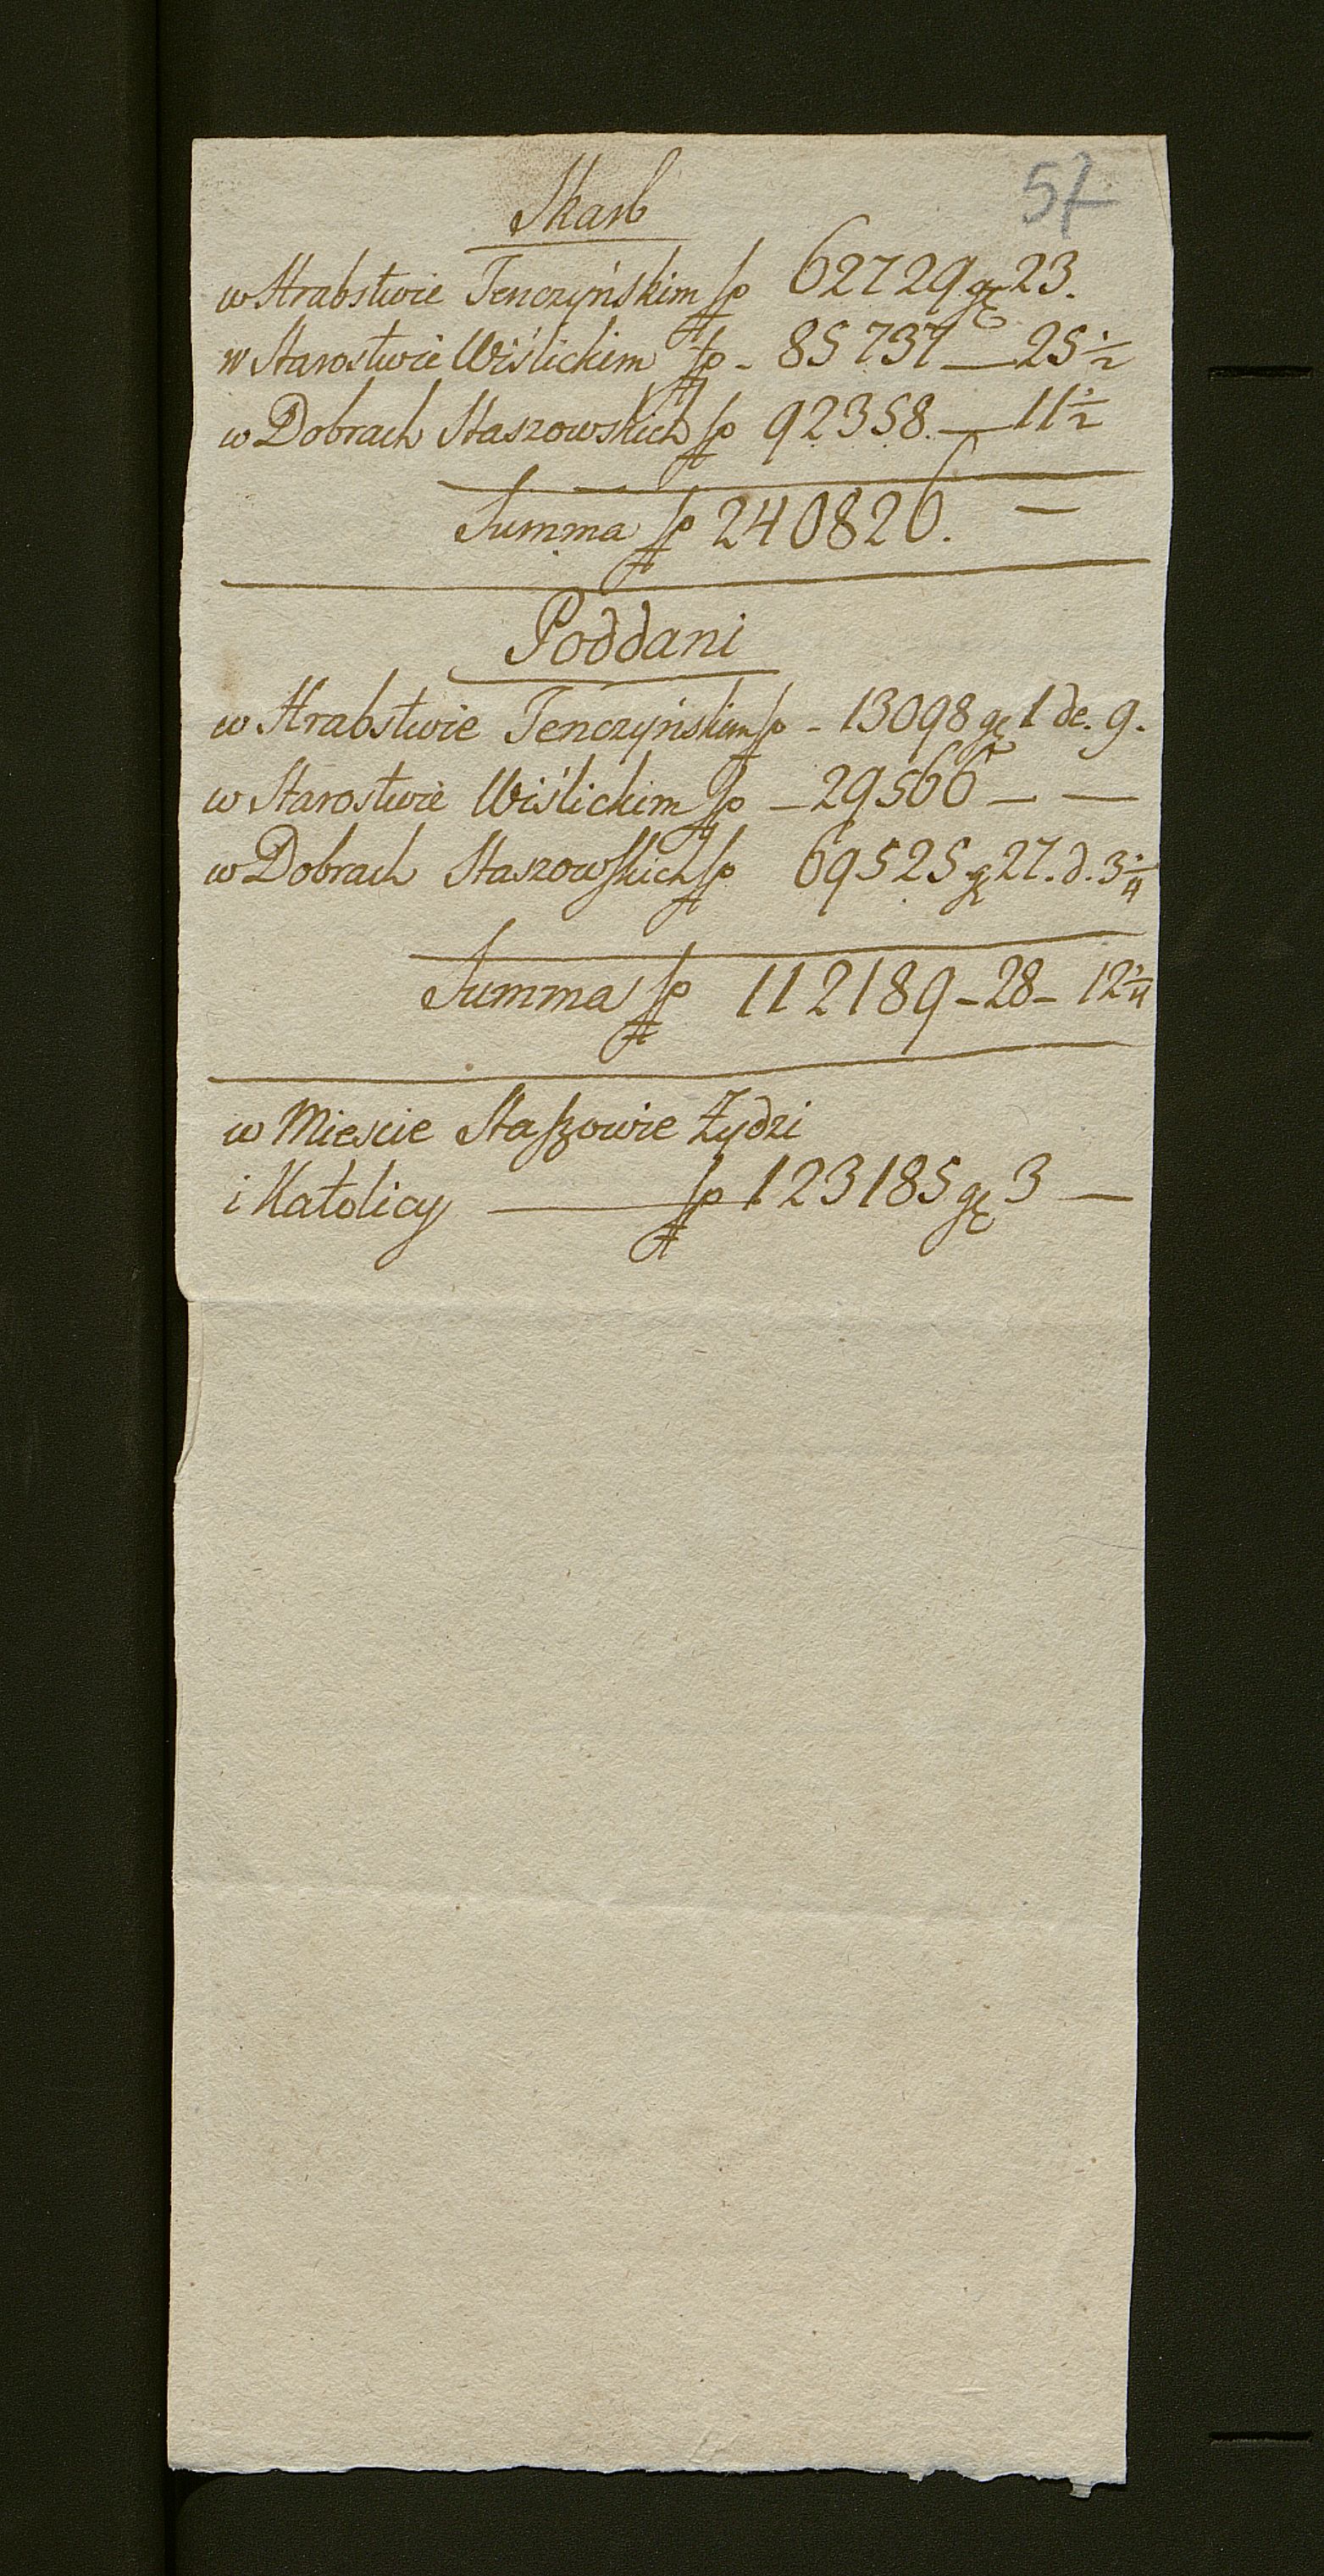 57
Skarb
w Hrabstwie Tenczyńskim fp 62729 gr 23.
w Starostwie Wiślickim fp - 85737 — 25 ½
w Dobrach Staszowskich fp 92358. — 11 ½
Summa fp 240826. —
Poddani
w Hrabstwie Tenczyńskim fp - 13098 gr 1 de. 9.
w Starostwie Wiślickim fp — 29566 — —
w Dobrach Staszowskich fp 69525 gr 27. d. 3 ¼
Summa fp 112189 - 28 - 12 ¼
w Miescie Staszowie Żydzi
i Katolicy — fp 123185 gr 3 —